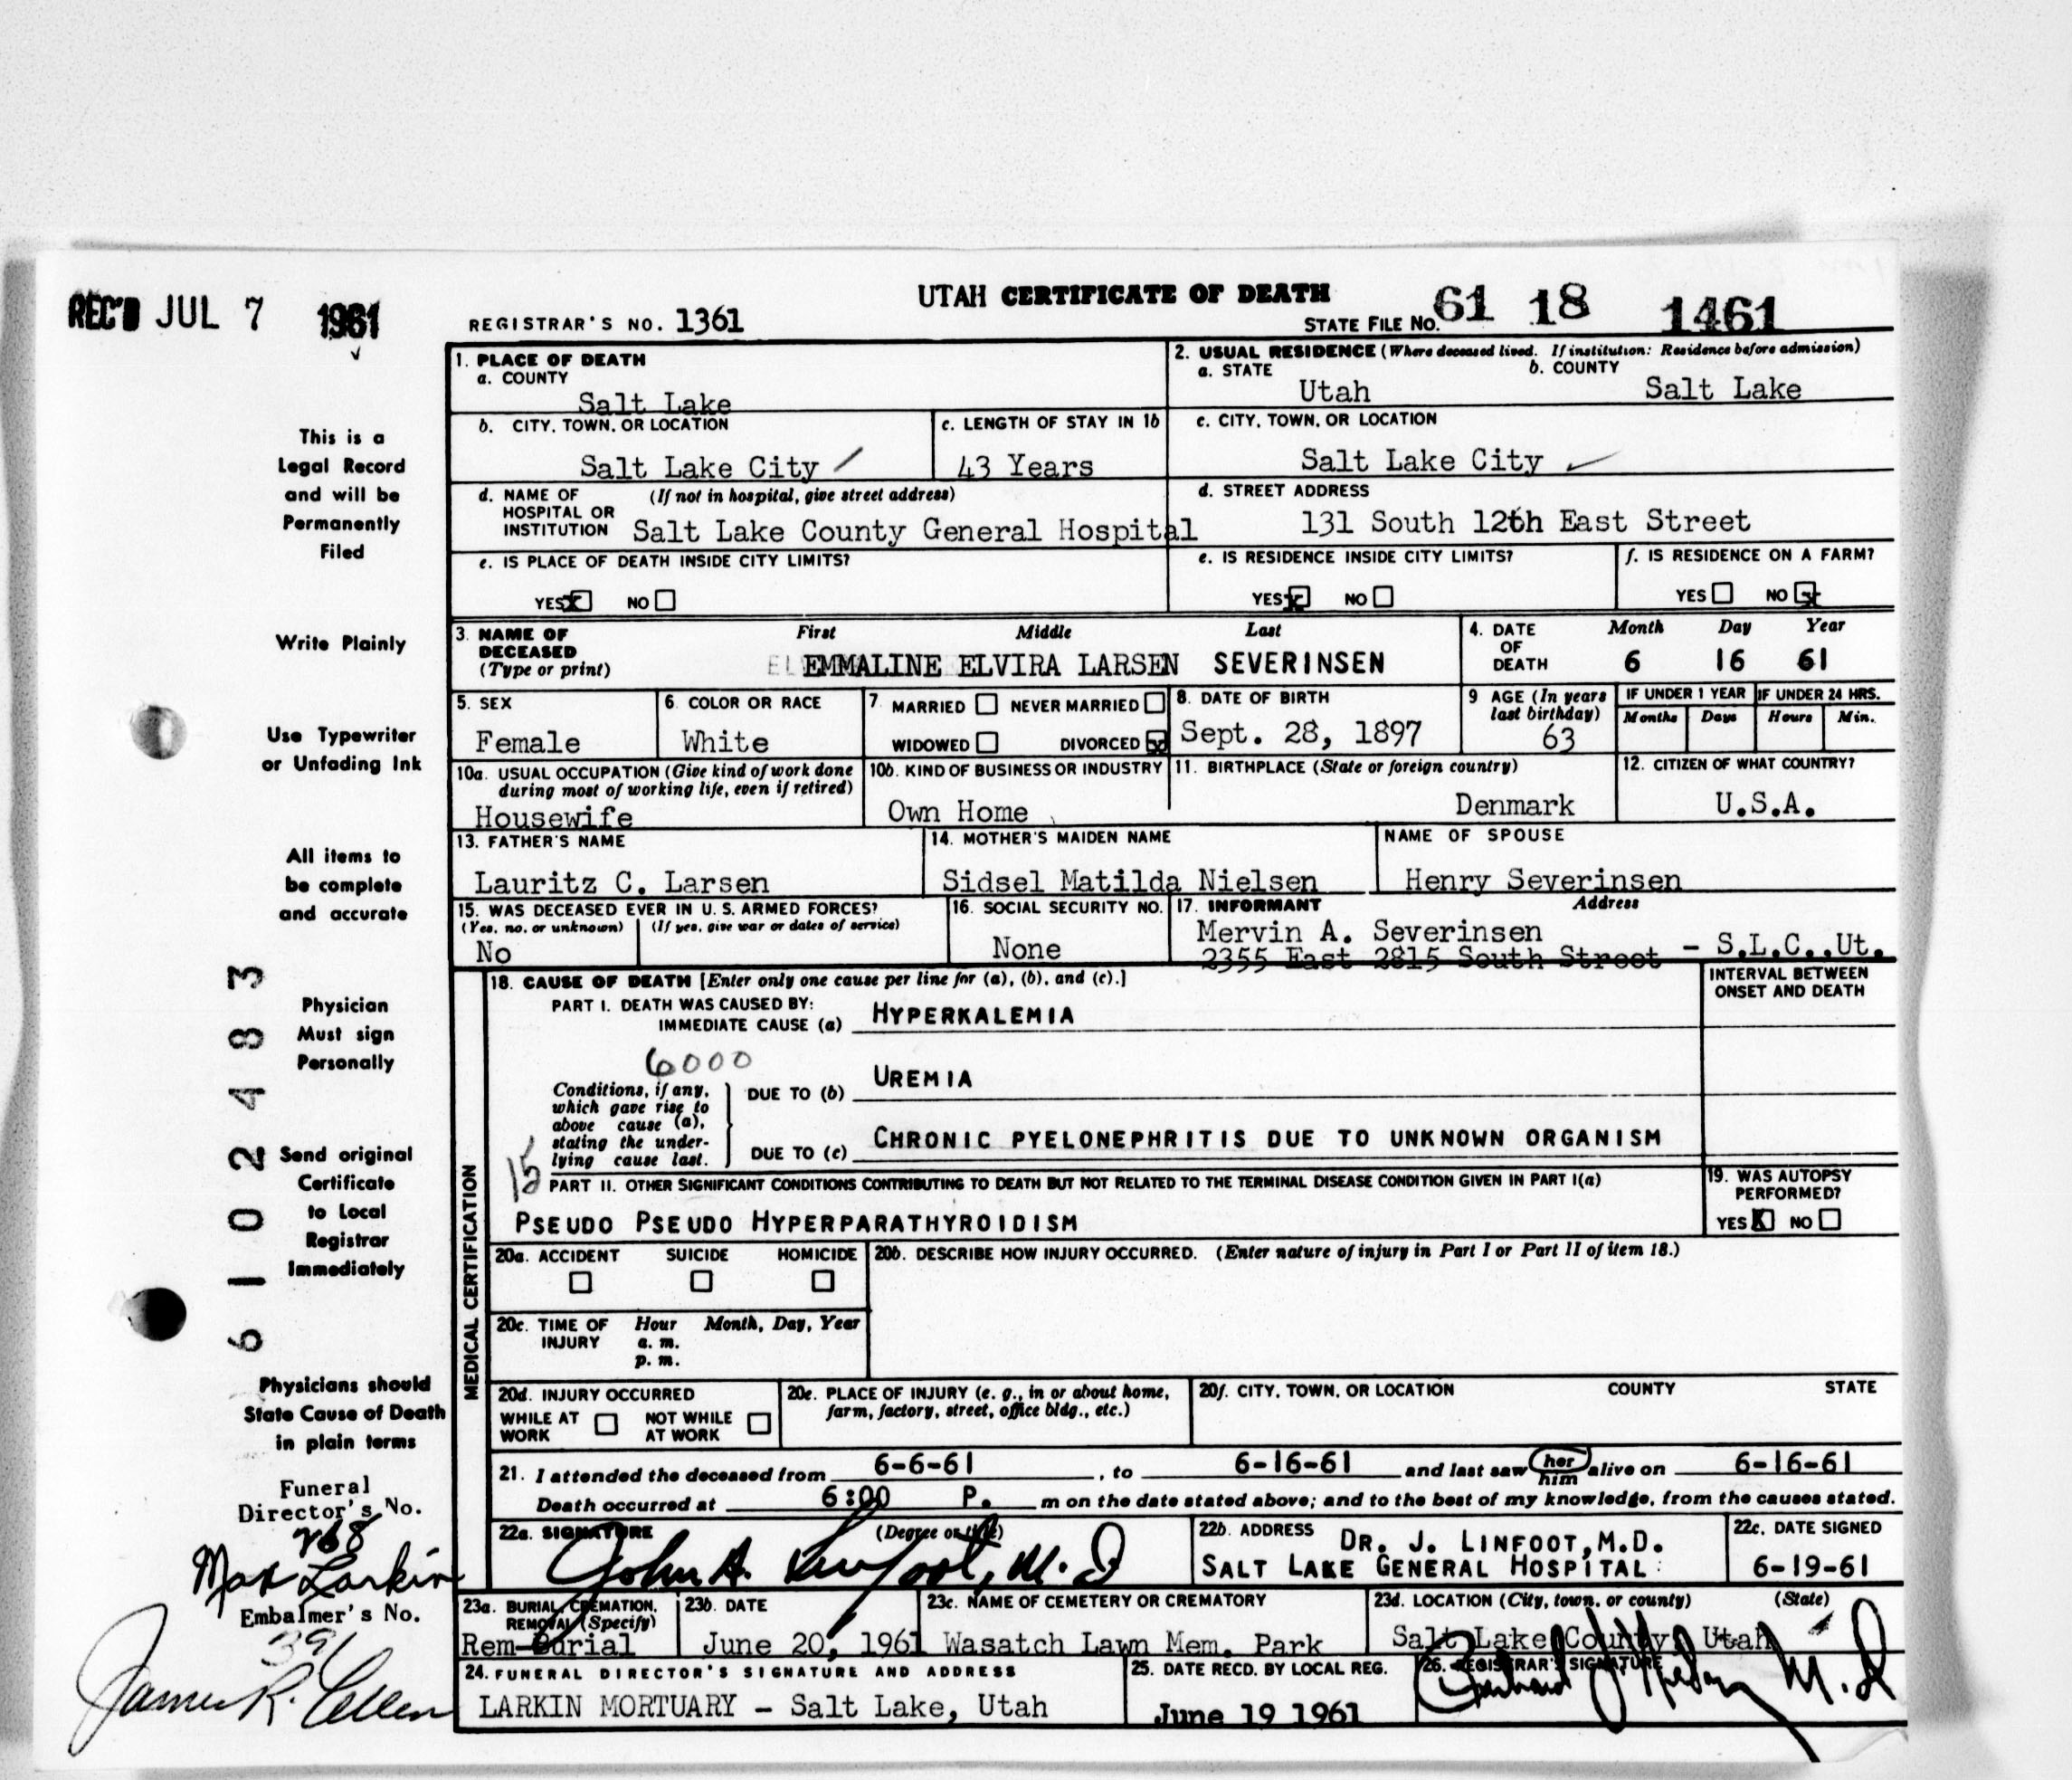 REC'D JUL 7 1961
UTAH CERTIFICATE OF DEATH
REGISTRAR'S NO. 1361
STATE FILE NO. 61 18 1461
This is a
Legal Record
and will be
Permanently
Filed
Write Plainly
Use Typewriter
or Unfading Ink
All items to
be complete
and accurate
Physician
Must sign
Personally
Send original
Certificate
to Local
Registrar
Immediately
Physicians should
State Cause of Death
in plain terms
Funeral
Director's No.
268
Max Larkin
Embalmer's No.
391
James R.
61 02483
1. PLACE OF DEATH
a. COUNTY
Salt Lake
2. USUAL RESIDENCE (Where deceased lived. If institution: Residence before admission)
a. STATE
Utah
b. COUNTY
Salt Lake
b. CITY, TOWN, OR LOCATION
Salt Lake City
c. LENGTH OF STAY IN 1b
43 Years
c. CITY, TOWN, OR LOCATION
Salt Lake City
d. NAME OF HOSPITAL OR INSTITUTION (If not in hospital, give street address)
Salt Lake County General Hospital
d. STREET ADDRESS
131 South 12th East Street
e. IS PLACE OF DEATH INSIDE CITY LIMITS?
YES X NO
e. IS RESIDENCE INSIDE CITY LIMITS?
YES X NO
f. IS RESIDENCE ON A FARM?
YES NO X
3. NAME OF DECEASED (Type or print)
First Middle Last
EMMALINE ELVIRA LARSEN SEVERINSEN
4. DATE OF DEATH
Month Day Year
6 16 61
5. SEX
Female
6. COLOR OR RACE
White
7. MARRIED NEVER MARRIED
WIDOWED DIVORCED X
8. DATE OF BIRTH
Sept. 28, 1897
9 AGE (In years last birthday)
63
IF UNDER 1 YEAR
Months Days
IF UNDER 24 HRS.
Hours Min.
10a. USUAL OCCUPATION (Give kind of work done during most of working life, even if retired)
Housewife
10b. KIND OF BUSINESS OR INDUSTRY
Own Home
11. BIRTHPLACE (State or foreign country)
Denmark
12. CITIZEN OF WHAT COUNTRY?
U.S.A.
13. FATHER'S NAME
Lauritz C. Larsen
14. MOTHER'S MAIDEN NAME
Sidsel Matilda Nielsen
NAME OF SPOUSE
Henry Severinsen
15. WAS DECEASED EVER IN U. S. ARMED FORCES?
(Yes, no, or unknown) (If yes, give war or dates of service)
No
16. SOCIAL SECURITY NO.
None
17. INFORMANT Address
Mervin A. Severinsen
2355 East 2815 South Street - S.L.C.,Ut.
MEDICAL CERTIFICATION
18. CAUSE OF DEATH [Enter only one cause per line for (a), (b), and (c).]
INTERVAL BETWEEN ONSET AND DEATH
PART I. DEATH WAS CAUSED BY:
IMMEDIATE CAUSE (a) HYPERKALEMIA
6000
Conditions, if any, which gave rise to above cause (a), stating the underlying cause last.
DUE TO (b) UREMIA
DUE TO (c) CHRONIC PYELONEPHRITIS DUE TO UNKNOWN ORGANISM
15
PART II. OTHER SIGNIFICANT CONDITIONS CONTRIBUTING TO DEATH BUT NOT RELATED TO THE TERMINAL DISEASE CONDITION GIVEN IN PART I(a)
PSEUDO PSEUDO HYPERPARATHYROIDISM
19. WAS AUTOPSY PERFORMED?
YES X NO
20a. ACCIDENT SUICIDE HOMICIDE
20b. DESCRIBE HOW INJURY OCCURRED. (Enter nature of injury in Part I or Part II of item 18.)
20c. TIME OF INJURY
Hour Month, Day, Year
a. m.
p. m.
20d. INJURY OCCURRED
WHILE AT WORK NOT WHILE AT WORK
20e. PLACE OF INJURY (e. g., in or about home, farm, factory, street, office bldg., etc.)
20f. CITY, TOWN, OR LOCATION COUNTY STATE
21. I attended the deceased from 6-6-61, to 6-16-61 and last saw her him alive on 6-16-61
Death occurred at 6:00 P. m on the date stated above; and to the best of my knowledge, from the causes stated.
22a. SIGNATURE (Degree or title)
John A. Linfoot, M.D
22b. ADDRESS DR. J. LINFOOT, M.D.
SALT LAKE GENERAL HOSPITAL
22c. DATE SIGNED
6-19-61
23a. BURIAL, CREMATION, REMOVAL (Specify)
Rem-Burial
23b. DATE
June 20, 1961
23c. NAME OF CEMETERY OR CREMATORY
Wasatch Lawn Mem. Park
23d. LOCATION (City, town, or county) (State)
Salt Lake County, Utah
24. FUNERAL DIRECTOR'S SIGNATURE AND ADDRESS
LARKIN MORTUARY - Salt Lake, Utah
25. DATE RECD. BY LOCAL REG.
June 19 1961
26. REGISTRAR'S SIGNATURE
M.D